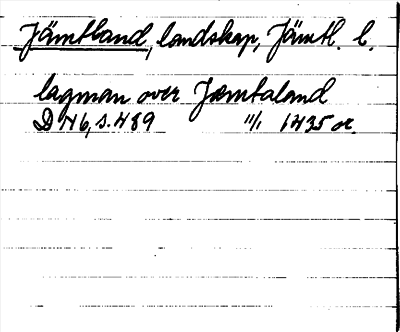 Jämtland, landskap, Jämtl. l.
lagman over Jæmtaland
DN6, s. 489 11/1 1435 or.